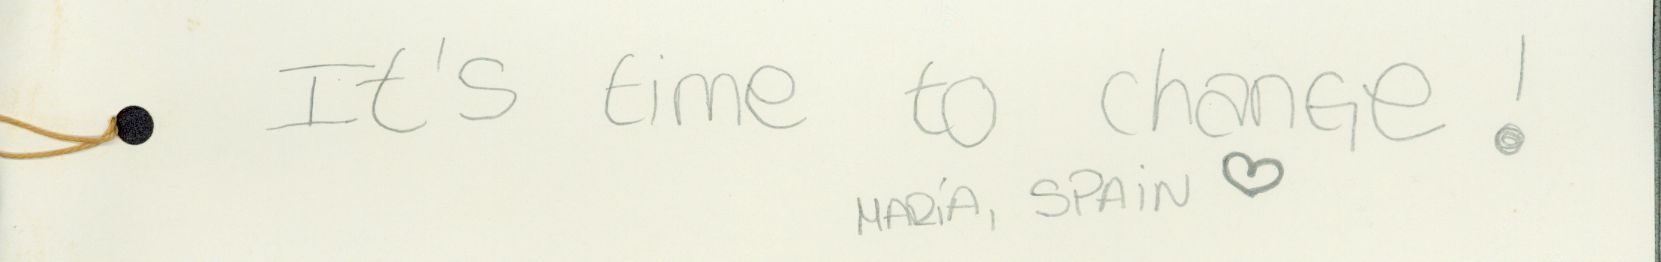 It's time to change!
MARÍA, SPAIN ♡